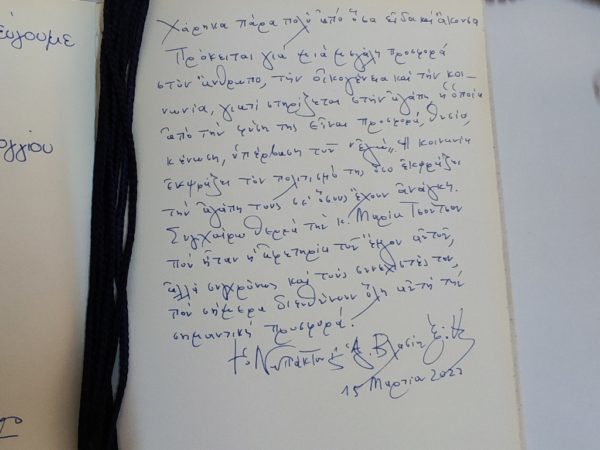 εύγουμε
ργίου
Χάρηκα πάρα πολύ ἀπό ὅσα εἶδα καί ἄκουσα
Πρόκειται γιά μιά μεγάλη προσφορά
στόν ἄνθρωπο, τήν οἰκογένεια καί τήν κοι-
νωνία, γιατί στηρίζεται στήν ἀγάπη ἡ ὁποία
ἀπό τήν φύση της εἶναι προσφορά, θυσία,
κένωση, ὑπέρβαση τοῦ "ἐγώ". Ἡ κοινωνία
ἐκφράζει τόν πολιτισμό της ὅσο ἐκφράζει
τήν ἀγάπη τους σέ ὅσους ἔχουν ἀνάγκη.
Συγχαίρω θερμά τήν κ. Μαρία
πού ἦταν ἡ ἀφετηρία τοῦ ἔργου αὐτοῦ,
ἀλλά συγχρόνως καί τούς συνεχιστές του,
πού σήμερα διευθύνουν ὅλη αὐτή τήν
σημαντική προσφορά.
† ὁ Ναυπάκτου & Ἁγ. Βλασίου
15 Μαρτίου